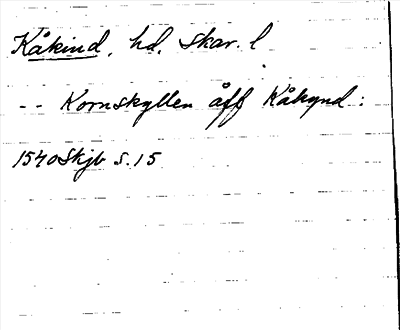 Kåkind, hd, Skar. l
-- Kornskyllen åff Kåkynd:
1540 Skjb s. 15